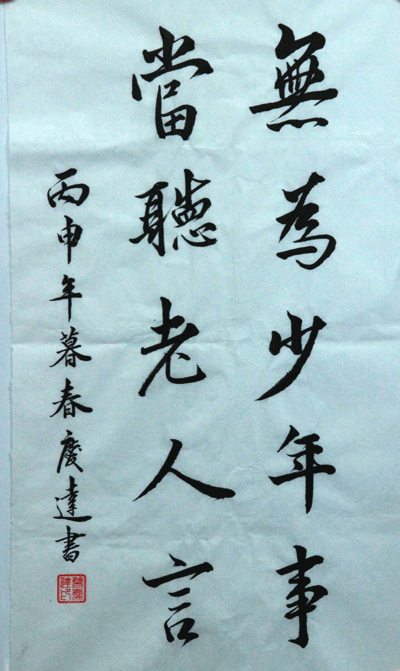 無為少年事
當聽老人言
丙申年暮春慶達書